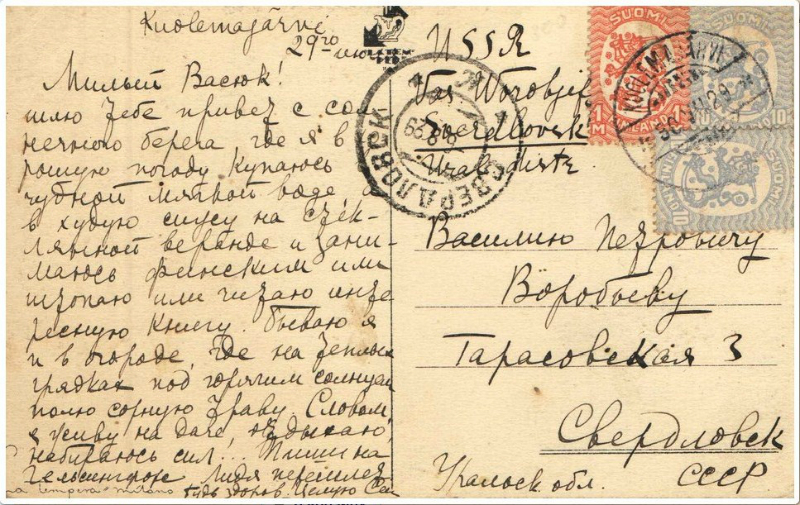 Kuolemajärvi
29го июля
Милый Васюк!
шлю тебе привет с сол
нечного берега, где я в хо
рошую погоду купаюсь
в чудной мягкой воде а
в худую сижу на стек-
лянной веранде и зани-
маюсь финским или
штопаю или читаю инте
ресную книгу. Бываю я
и в огороде, где на теплых
грядках под горячим солнцем
полю сорную траву. Словом
я живу на даче, отдыхаю,
набираюсь сил... Пиши на
Гельсингфорс Лидя перешлет
Будь здоров. Целую
La tempera
USSR
Was Worobjef
Sverdlovsk
Uralski distr
Василию Петровичу
Воробьеву
Тарасовская 3
Свердловск
Уральск обл. СССР
СВЕРДЛОВСК
SUOMI
1 M
FINLAND
SUOMI
10
KUOLEMAJÄRVI
10